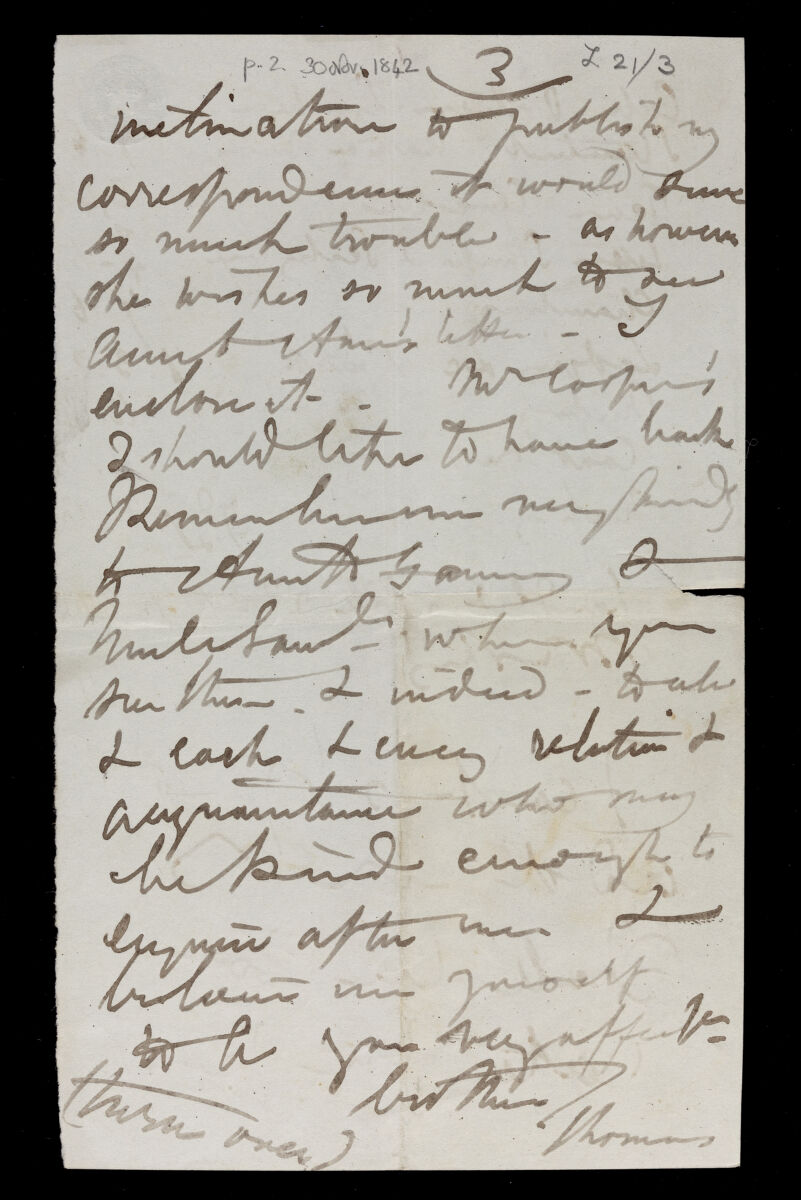 p. 2. 30 Nov. 1842 3 L 21/3
inclination to publish to my
correspondence it would save
so much trouble - as however
she wishes so much to see
Aunt Ann's letter - I
enclose it - Mr Cooper's
I should like to have back
Remember me very kindly
to Aunt &
when you
see them - & indeed - to all
& each & every relation &
acquaintance who may
be kind enough to
enquire after me &
believe me yourself
to be your very affect
brother
Thomas
(turn over)